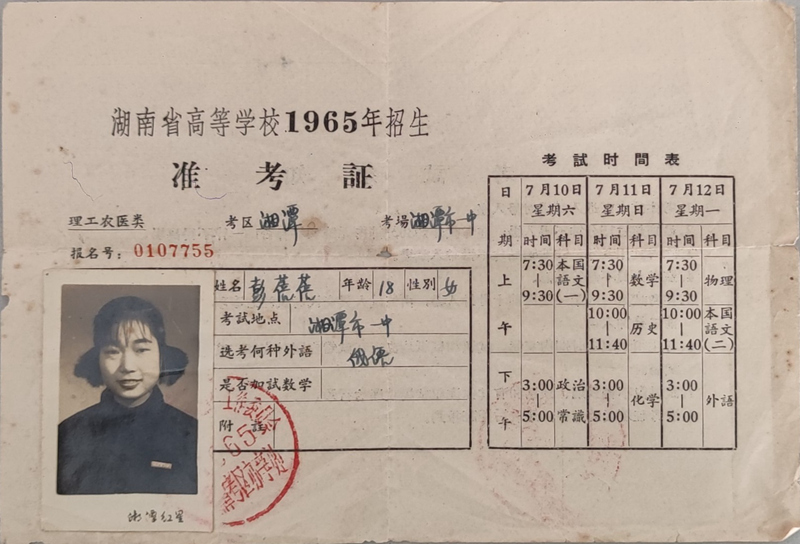 湖南省高等学校1965年招生
准考証
理工农医类 考区湘潭 考場湘潭市一中
报名号：0107755
姓名 彭蓓蓓 年龄 18 性別 女
考試地点 湘潭市一中
选考何种外語 俄语
是否加試数学
附註
湘潭红星
考試时間表
日期 7月10日 星期六 7月11日 星期日 7月12日 星期一
时间 科目 时間 科目 时間 科目
上午 7:30 | 9:30 本国語文(一) 7:30 | 9:30 数学 7:30 | 9:30 物理
10:00 | 11:40 历史 10:00 | 11:40 本国語文(二)
下午 3:00 | 5:00 政治常識 3:00 | 5:00 化学 3:00 | 5:00 外語